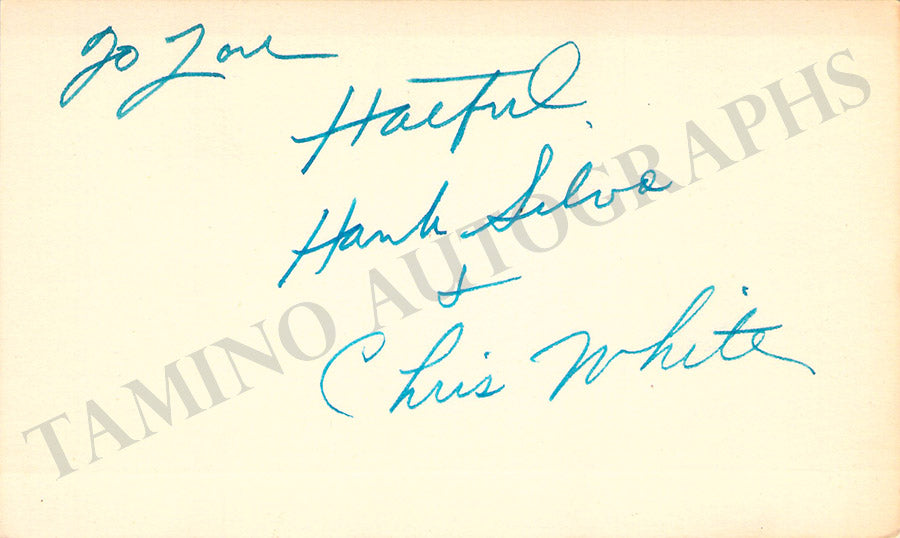 To
Hateful
Hank Silva
+
Chris White
TAMINO AUTOGRAPHS